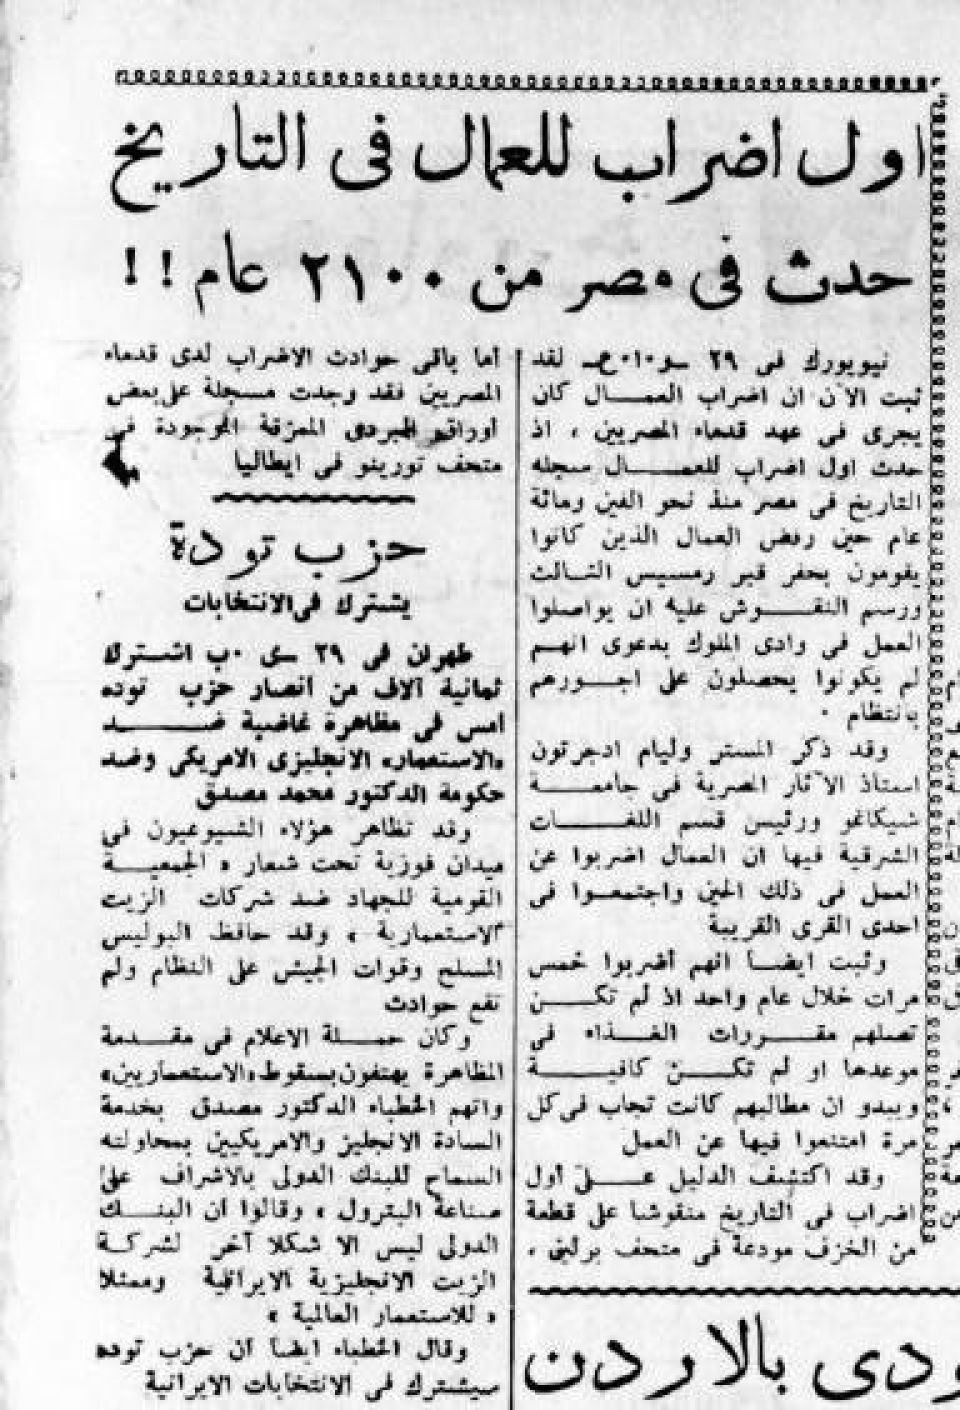 اول اضراب للعمال فى التاريخ
حدث فى مصر من ٢١٠٠ عام !!
نيويورك فى ٢٩ ـ و٠ا٠ع ـ لقد
ثبت الآن ان اضراب العمال كان
يجرى فى عهد قدماء المصريين ، اذ
حدث اول اضراب للعمال سجله
التاريخ فى مصر منذ نحو الفين ومائة
عام حين رفض العمال الذين كانوا
يقومون بحفر قبر رمسيس الثالث
ورسم النقوش عليه ان يواصلوا
العمل فى وادى الملوك بدعوى انهم
لم يكونوا يحصلون على اجورهم
بانتظام ٠
وقد ذكر المستر وليام ادجرتون
استاذ الآثار المصرية فى جامعة
شيكاغو ورئيس قسم اللغات
الشرقية فيها ان العمال اضربوا عن
العمل فى ذلك الحين واجتمعوا فى
احدى القرى القريبة
وثبت ايضا انهم أضربوا خمس
مرات خلال عام واحد اذ لم تكن
تصلهم مقررات الغذاء فى
موعدها او لم تكن كافية
ويبدو ان مطالبهم كانت تجاب فى كل
مرة امتنعوا فيها عن العمل
وقد اكتشف الدليل على أول
اضراب فى التاريخ منقوشا على قطعة
من الخزف مودعة فى متحف برلين ،
أما باقى حوادث الاضراب لدى قدماء
المصريين فقد وجدت مسجلة على بعض
أوراق البردى الممزقة الموجودة فى
متحف تورينو فى ايطاليا
حزب تودة
يشترك فى الانتخابات
طهران فى ٢٩ ـ ى ٠ب اشترك
ثمانية آلاف من أنصار حزب توده
أمس فى مظاهرة غاضبة ضد
«الاستعمار» الانجليزى الامريكى وضد
حكومة الدكتور محمد مصدق
وقد تظاهر هؤلاء الشيوعيون فى
ميدان فوزية تحت شعار « الجمعية
القومية للجهاد ضد شركات الزيت
الاستعمارية » وقد حافظ البوليس
المسلح وقوات الجيش على النظام ولم
تقع حوادث
وكان حملة الاعلام فى مقدمة
المظاهرة يهتفون بسقوط «الاستعماريين»
واتهم الخطباء الدكتور مصدق بخدمة
السادة الانجليز والامريكيين بمحاولته
السماح للبنك الدولى بالاشراف على
صناعة البترول ، وقالوا ان البنك
الدولى ليس الا شكلا آخر لشركة
الزيت الانجليزية الايرانية وممثلا
« للاستعمار العالمية »
وقال الخطباء ايضا أن حزب توده
سيشترك فى الانتخابات الايرانية
ودى بالاردن